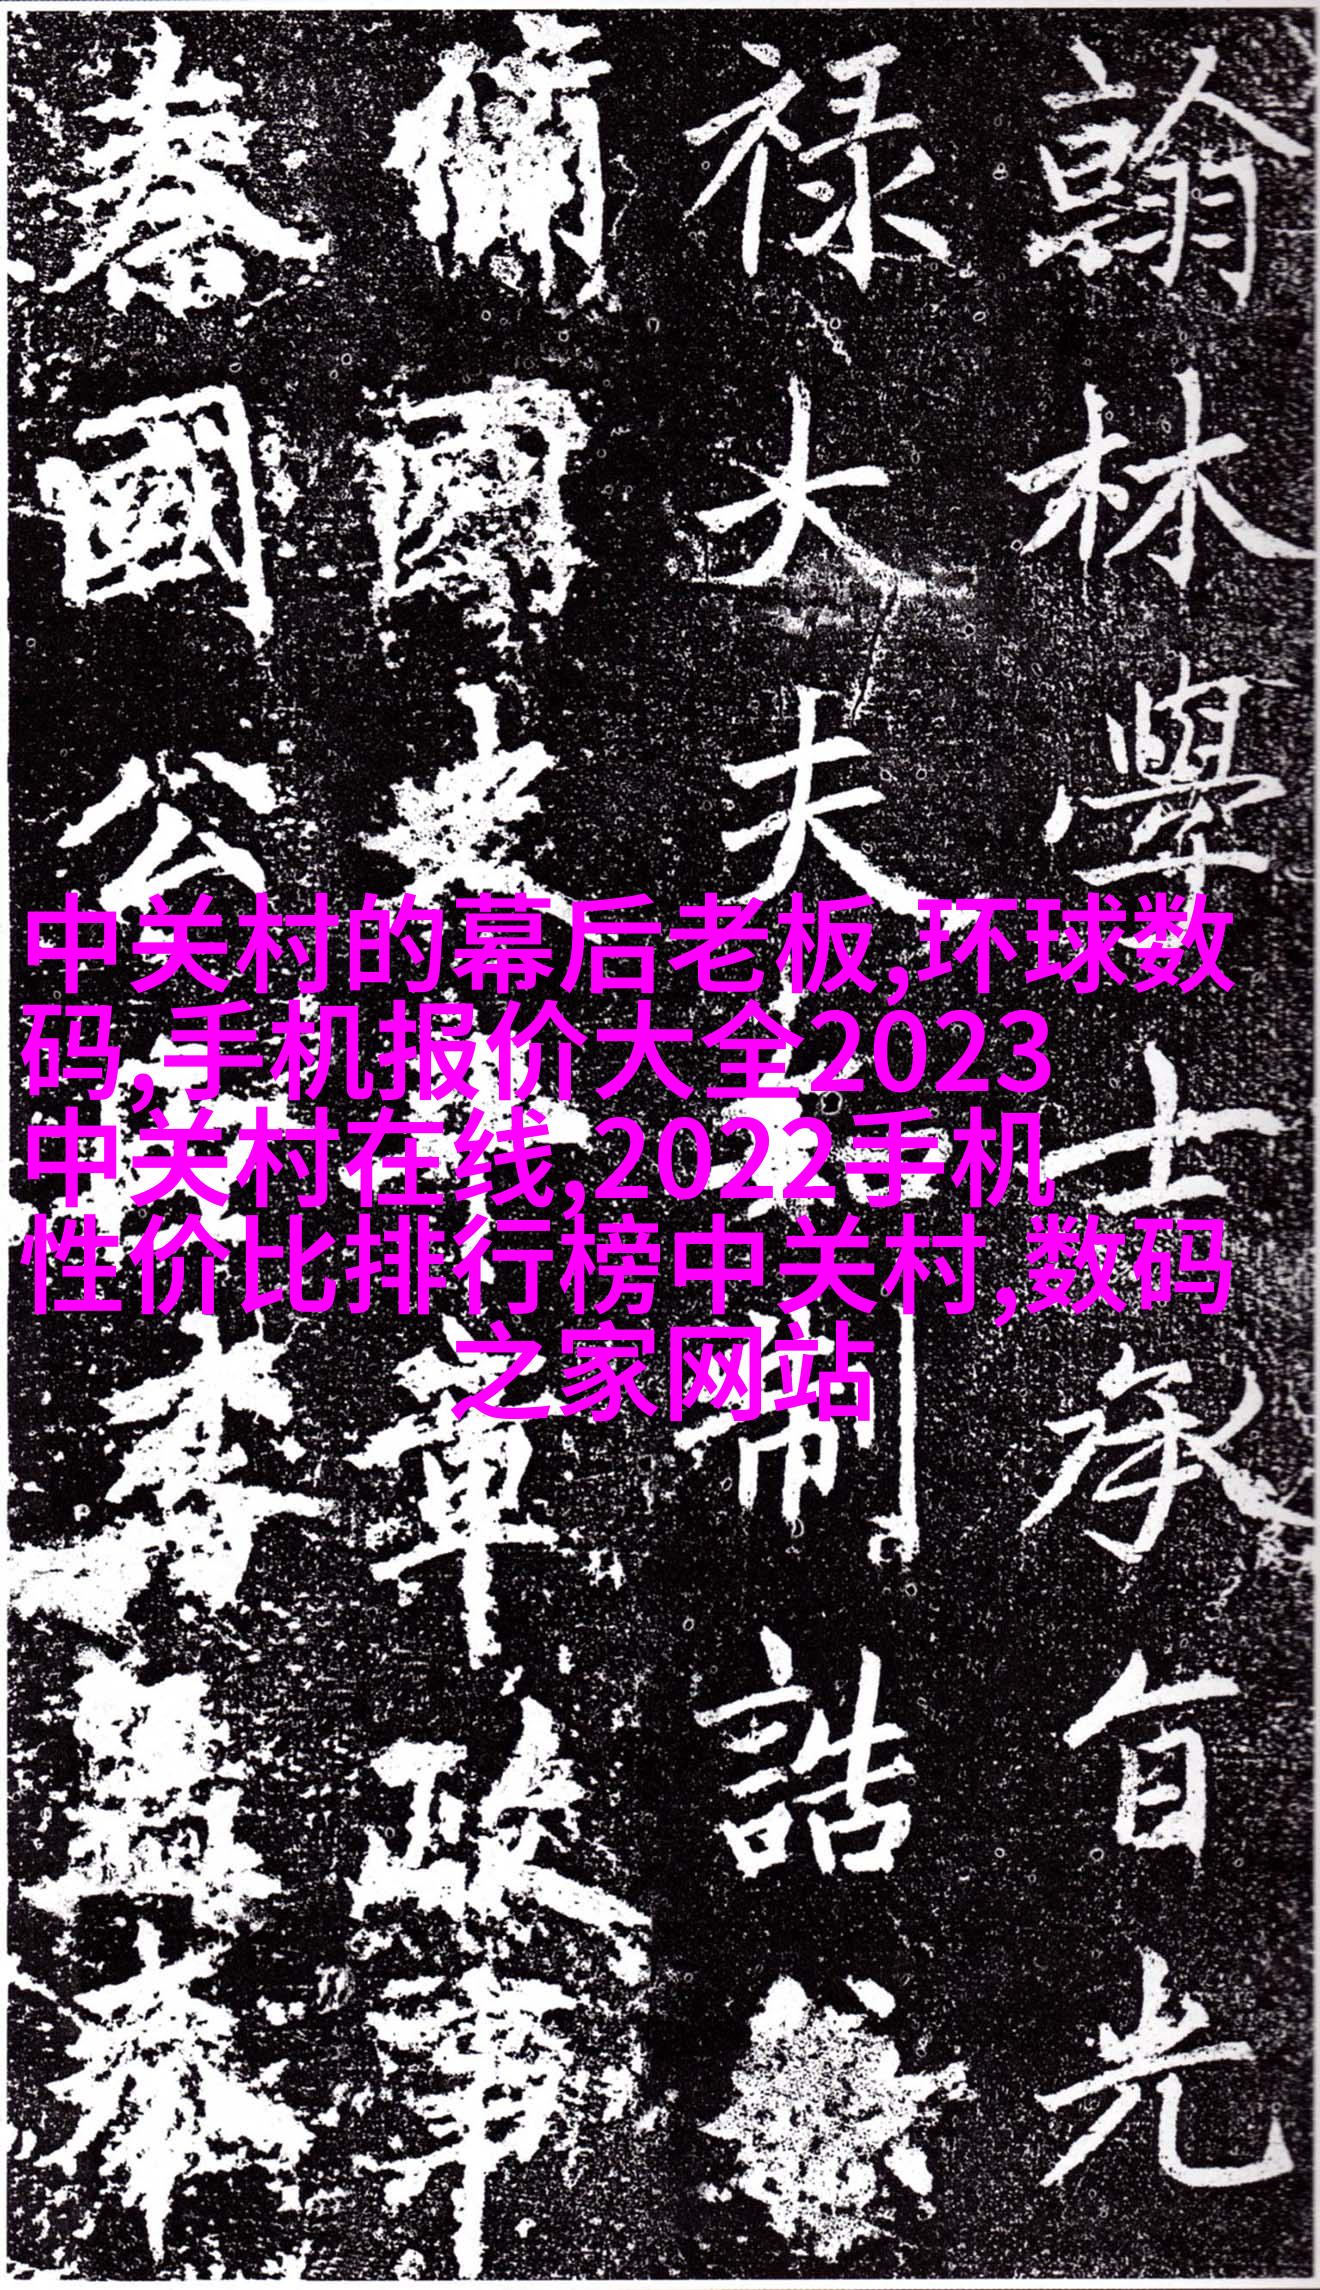 中关村的幕后老板,环球数
码,手机报价大全2023
中关村在线,2022手机
性价比排行榜中关村,数码
之家网站
翰林學士承旨光
禄大夫知制誥
脩國史平章政事
秦國公臣李孟奉